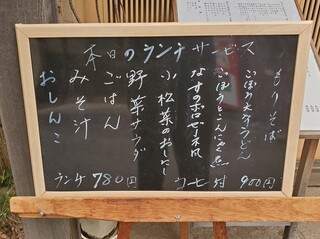 本日のランチサービス
もりそば
ごぼう天うどん
ごぼうとこんにゃく煮
なすのボロネーゼ風
小松菜のおひたし
野菜サラダ
ごはん
みそ汁
おしんこ
ランチ 780円
コーヒー付 900円